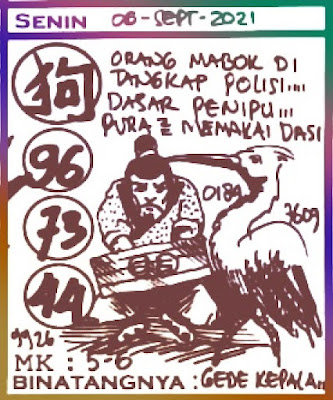 SENIN 06-SEPT-2021
狗
ORANG MABOK DI
TANGKAP POLISI....
DASAR PENIPU...
PURA2 MEMAKAI DASI
96
0189
7609
73
44
9926
MK : 5-6
BINATANGNYA : GEDE KEPALA..